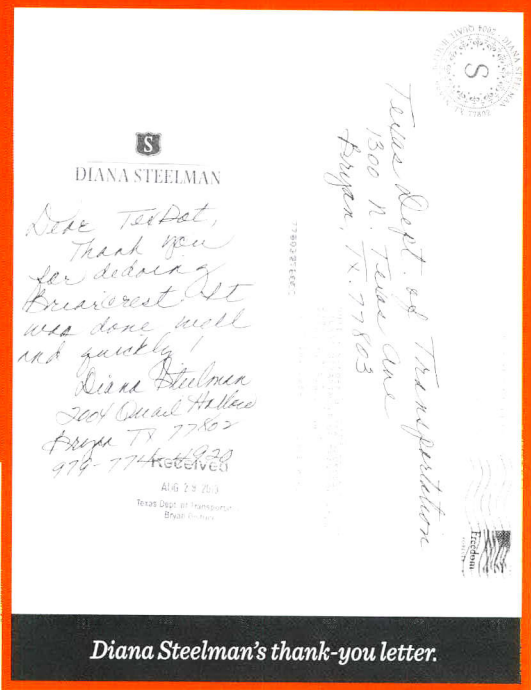 S
DIANA STEELMAN
Dear TexDot,
Thank you
for dedoing
Briarcrest. It
was done well
and quickly!
Diana Steelman
2004 Quail Hollow
Bryan TX 77802
979-774-4920
Received
AUG 28
Texas Dept. of Transportation
Bryan
Texas Dept. of Transportation
1300 N. Texas Ave
Bryan, TX. 77803
S
DIANA STEELMAN
2004 QUAIL
Freedom
Diana Steelman's thank-you letter.